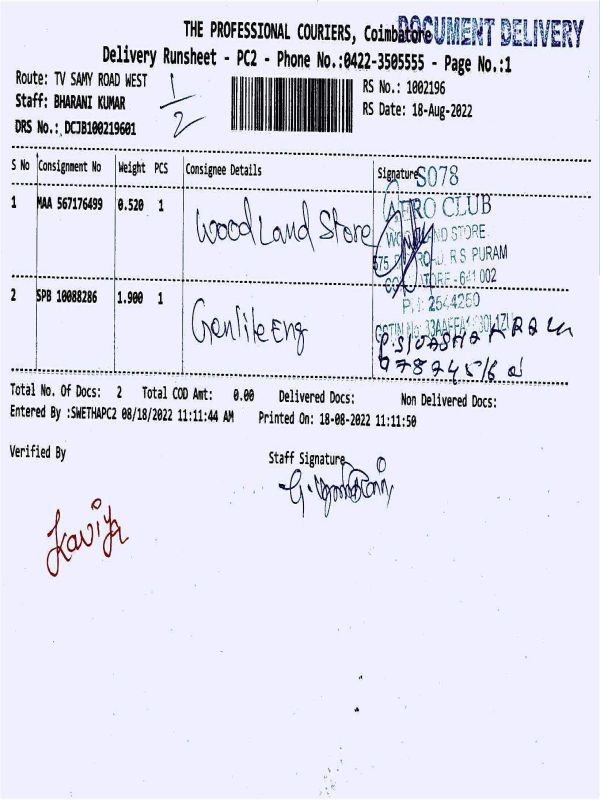 THE PROFESSIONAL COURIERS, Coimbatore DOCUMENT DELIVERY
Delivery Runsheet - PC2 - Phone No.:0422-3505555 - Page No.:1
Route: TV SAMY ROAD WEST
Staff: BHARANI KUMAR
DRS No.: DCJB100219601
1/2
RS No.: 1002196
RS Date: 18-Aug-2022
S No Consignment No Weight PCS Consignee Details Signature
S078
1 MAA 567176499 0.520 1 Wood Land Store
AERO CLUB
WOODLAND STORE
R S PURAM
641 002
PH: 2544260
2 SPB 10088286 1.900 1 Gentile Eng
GSTIN No:
Total No. Of Docs: 2 Total COD Amt: 0.00 Delivered Docs: Non Delivered Docs:
Entered By :SWETHAPC2 08/18/2022 11:11:44 AM Printed On: 18-08-2022 11:11:50
Verified By Staff Signature
Kaviya